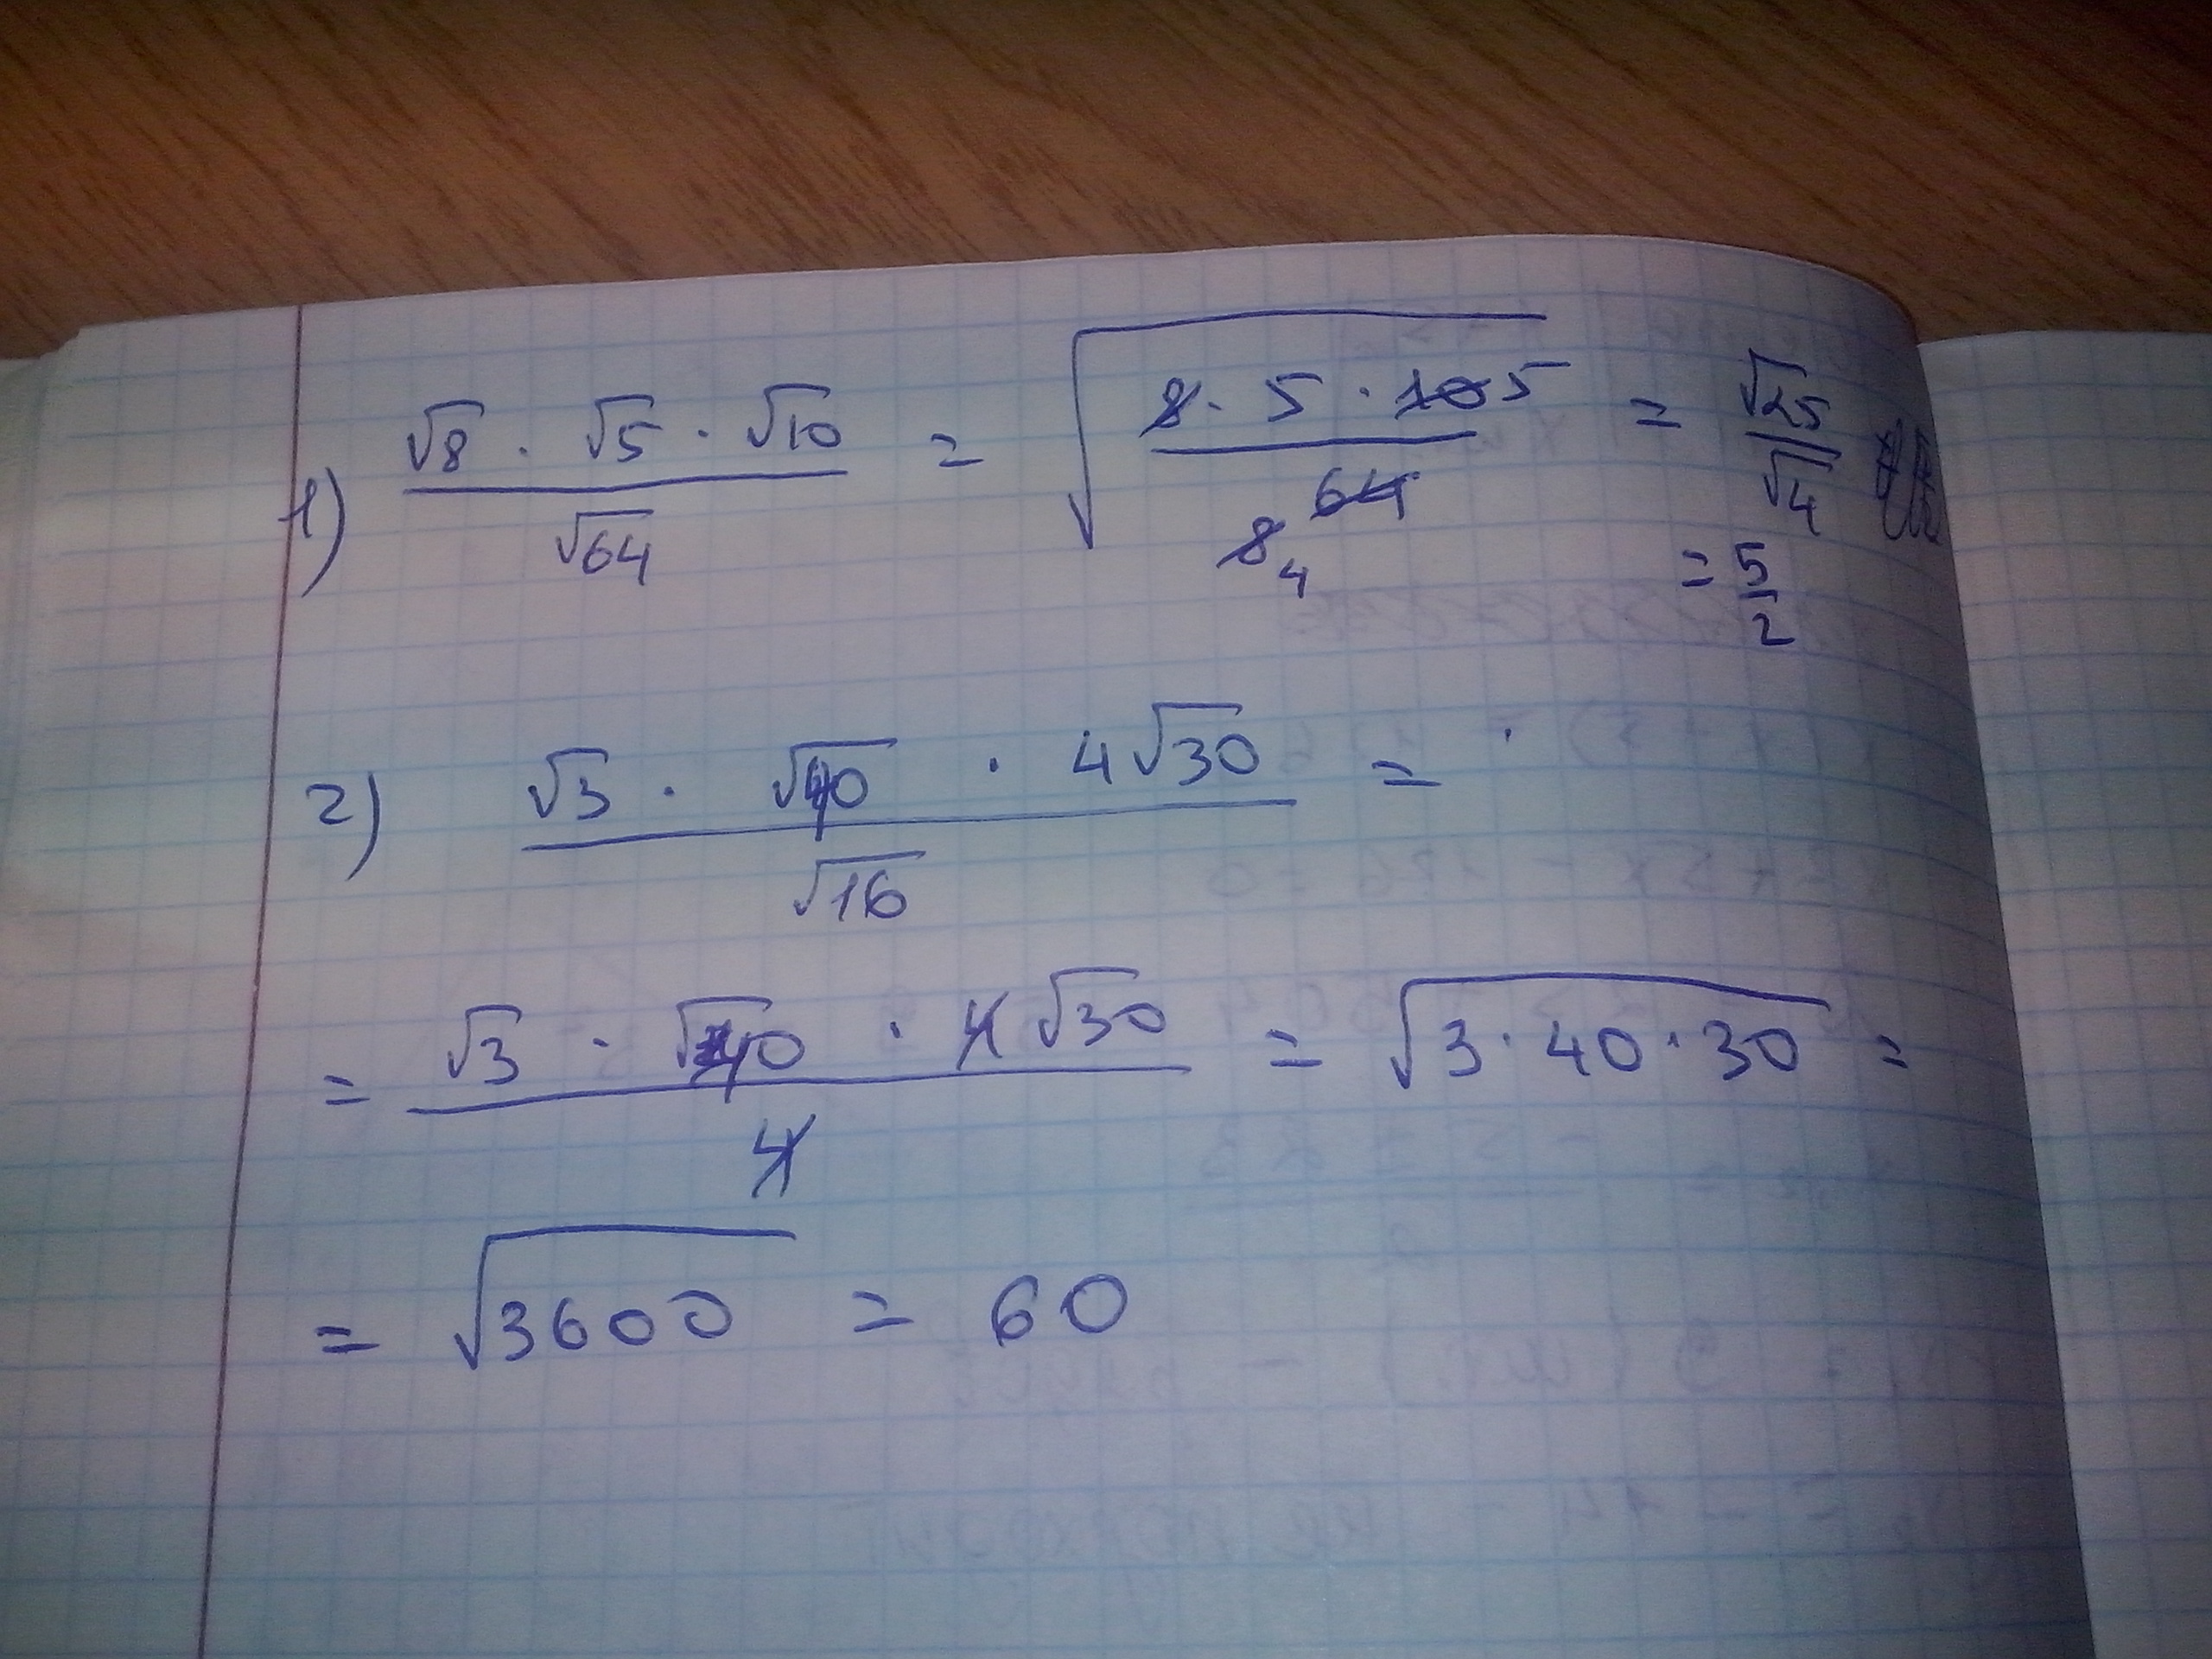 1) (√8 · √5 · √10) / √64 = √((8 · 5 · 10 5) / (64 8 4)) = √25 / √4
= 5/2
2) (√3 · √40 · 4√30) / √16 =
= (√3 · √40 · 4√30) / 4 = √(3 · 40 · 30) =
= √3600 = 60